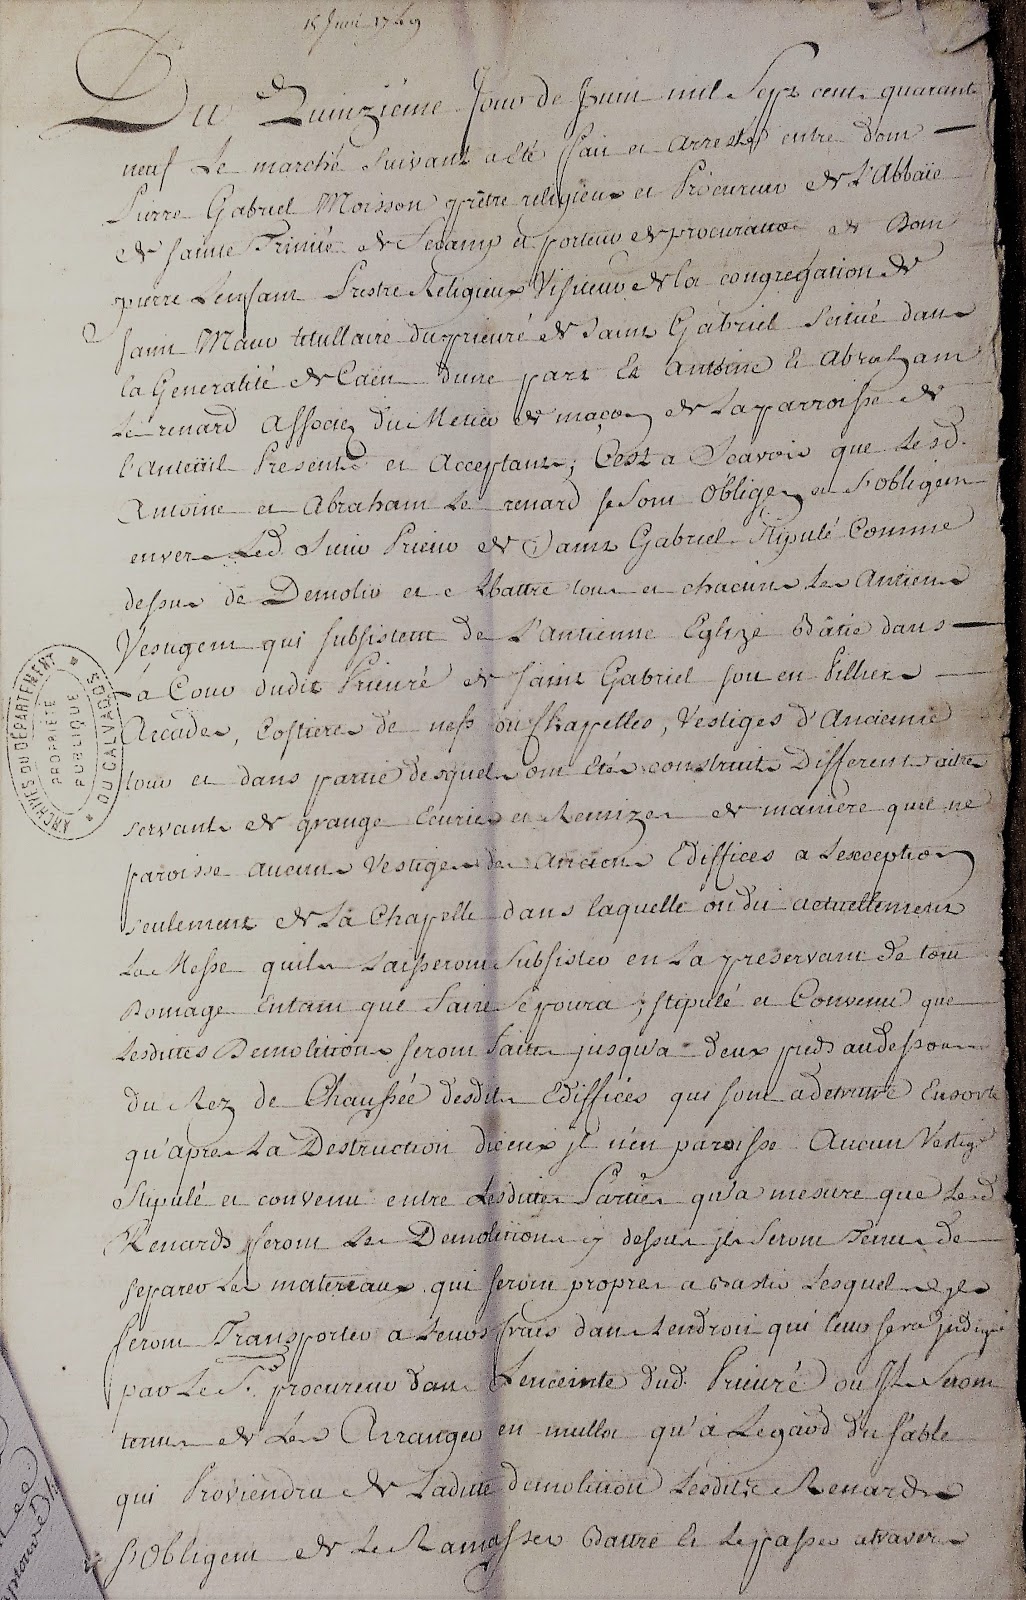 15 Juin 1749
Du Quinziéme Jour de Juin mil Sept cent quarant
neuf Le marché Suivant a été fait et arresté entre dom
Pierre Gabriel Moisson prêtre religieux et Procureur de L'Abbaïe
de Sainte Trinité de Fecamp et porteur de procuration de Dom
pierre Lenfant Prestre Religieux Visiteur de la congregation de
saint Maur titullaire du prieuré de Saint Gabriel Scitué dans
la Generalité de Caën dune part Et Antoine Et Abraham
Le renard Associez du Metier de maçon de La parroisse de
Presents et Acceptants, C'est a Scavoir que Lesd.
Antoine et Abraham Le renard se Sont obligez et s'obligent
envers Led. Sieur Prieur de Saint Gabriel Stipulé Comme
dessus de Demolir et abattre tous et chacuns Les Antiens
Vestigem qui subsistent de L'antienne Eglize Bâtie dans
la Cour dudit Prieuré de saint Gabriel soit en Pilliers
Arcades, Costieres de nefs ou Chapelles, Vestiges d'Ancienne
tour et dans partie desquels ont étés construits Differents aitres
servants de grange Ecuries et Remizes de maniere quil ne
paroisse aucuns Vestiges des Anciens Ediffices a Lexception
seulement de La Chapelle dans laquelle on dit actuellement
La Messe quils Laisseront Subsister en La preservant de tout
Domage Entant que Faire Se poura ; stipulé et Convenu que
Lesdittes Demolitions seront faites jusqu'a deux pieds audessous
du Rez de Chaussée desdits Ediffices qui sont a detruire Ensorte
qu'apres La Destruction diceux jl n'en paroisse Aucun Vestige
Stipulé et convenu entre Lesdittes Parties qu'a mesure que Lesd
Renards feront Les Demolitions cy dessus jls Seront Tenus de
separer Les matereaux qui seront propres a Bastir Lesquels jls
feront Transporter a Leurs frais dans Lendroit qui leur sera jndiqué
par Le Sr. procureur dans Lenceinte dud. Prieuré ou Jls Seront
tenus de Les Arranger en mullon qu'a Legard du sable
qui Proviendra de Laditte demolition Lesdits Renards
s'Obligent de Le Ramasser Battre Et Le passer atravers
ARCHIVES DU DÉPARTEMENT
DU CALVADOS
PROPRIÉTÉ
PUBLIQUE